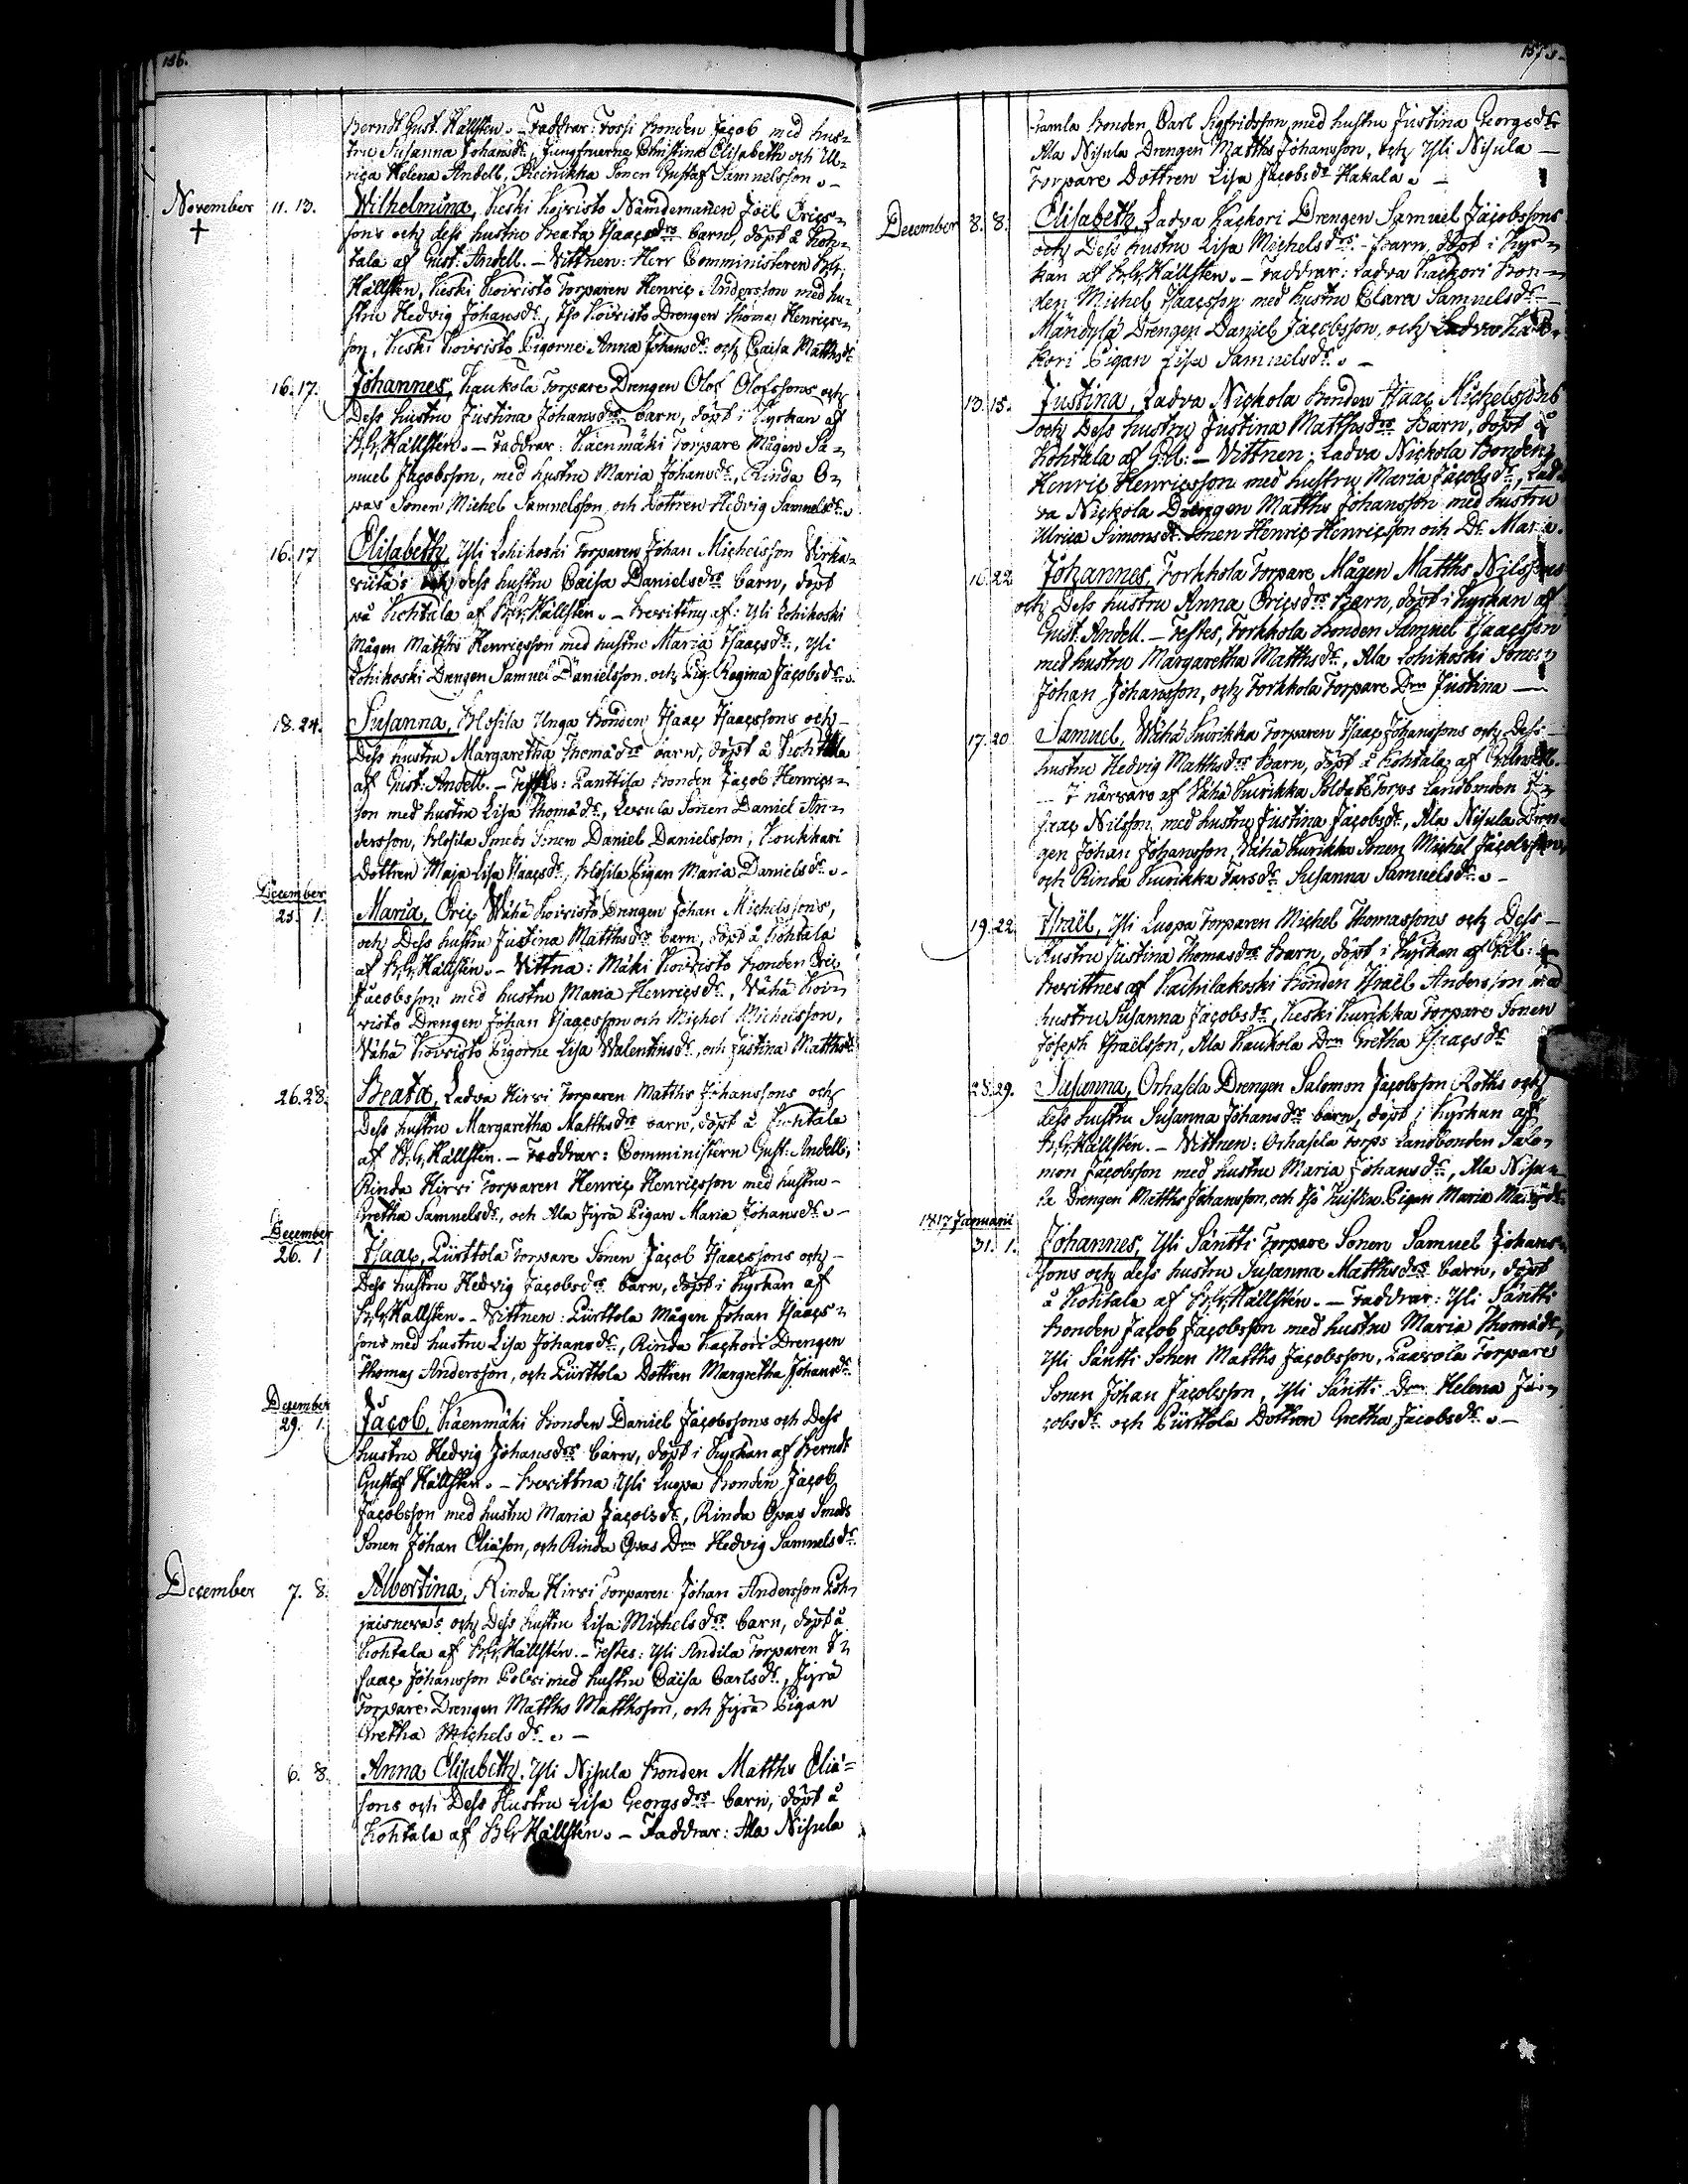 156.
Berndt Gust. Hällsten. – Faddrar: Fossi Bonden Jacob med hus-
tru Susanna Johansdr, Jungfruerne Christina Elisabeth och Ul-
rica Helena Andell, Reinikka Sonen Gustaf Samuelsson. –
November 11. 13. Wilhelmina, Keski Koivisto Nämdemannen Joël Erics-
† sons och dess hustru Beata Isaacsdrs barn, döpt å Koh-
tala af Gust: Andell. – Vittnen: Herr Comministeren B.G.
Hällsten, Keski Koivisto Torparen Henric Andersson med hu-
stru Hedvig Johansdr, Iso Koivisto Drengen Thomas Henrics-
son, Keski Koivisto Pigorne Anna Johansdr och Caisa Matthsdr
16. 17. Johannes, Kaukola Torpare Drengen Olof Olofssons och
Dess hustru Justina Johansdrs barn, döpt i Kyrkan af
B.G. Hällsten. – Faddrar: Käenmäki Torpare Mågen Sa-
muel Jacobsson, med hustru Maria Johansdr, Rinda O-
pas Sonen Michel Samuelsson och Dottren Hedvig Samuelsdr.
16. 17 Elisabeth, Yli Lohikoski Torparen Johan Michelsson
och dess hustru Caisa Danielsdrs barn, döpt
på Kohtala af B.G. Hällsten. – Bevittng af: Yli Lohikoski
Mågen Matths Henricsson med hustru Maria Isaacsdr, Yli
Lohikoski Drengen Samuel Danielsson och Pig. Regina Jacobsdr.
18. 24. Susanna, Blosila Unga Bonden Isaac Isaacssons och
Dess hustru Margaretha Thomædrs barn, döpt å Kohtala
af Gust: Andell. – Testes: Panttila Bonden Jacob Henrics-
son med hustru Lisa Thomædr, Lesula Sonen Daniel An-
dersson, Blosila Smeds Sonen Daniel Danielsson, Koukkari
Dottren Maja Lisa Isaacsdr, Blosila Pigan Maria Danielsdr. –
December
25. 1. Maria, Eric Wähä Koivisto Drengen Johan Michelssons,
och Dess hustru Justina Matthsdrs barn, döpt å Kohtala
af B.G. Hällsten. – Vittna: Mäki Koivisto Bonden Eric
Jacobsson med hustru Maria Henricsdr, Wähä Koi-
visto Drengen Johan Isaacsson och Michel Michelsson,
Wähä Koivisto Pigorne Lisa Walentinsdr, och Justina Matthsdr.
26. 28. Beata, Ladva Hirsi Torparen Matths Johanssons och
Dess hustru Margaretha Matthsdrs barn, döpt å Kohtala
af B.G. Hällsten. – Faddrar: Comministern Gust: Andell,
Rinda Hirsi Torparen Henric Henricsson med hustru
Gretha Samuelsdr, och Ala Jyrä Pigan Maria Johansdr. –
December
26. 1 Isaac, Piirttola Torpare Sonen Jacob Isaacssons och
Dess hustru Hedvig Jacobsdrs barn, döpt i Kyrkan af
B.G. Hällsten. – Vittnen: Piirttola Mågen Johan Isaacs-
sons med hustru Lisa Johansdr, Rinda Kackori Drengen
Thomas Andersson, och Piirttola Dottren Margretha Johansdr.
December
29. 1. Jacob, Käenmäki Bonden Daniel Jacobssons och Dess
hustru Hedvig Johansdrs barn, döpt i Kyrkan af Berndt
Gustaf Hällsten. – Bevittna Yli Luopa Bonden Jacob
Jacobsson med hustru Maria Jacobsdr, Rinda Opas Smeds
Sonen Johan Eliasson, och Rinda Opas Drn Hedvig Samuelsdr.
December 7. 8. Albertina, Rinda Hirsi Torparen Johan Andersson Poh-
jaisneva's och Dess hustru Lisa Michelsdrs barn, döpt å
Kohtala af B.G. Hällsten. – Testes: Yli Andila Torparen I-
saac Johansson med hustru Caisa Carlsdr, Jyrä
Torpare Drengen Matths Matthsson, och Jyrä Pigan
Gretha Michelsdr. –
6. 8. Anna Elisabeth, Yli Nisula Bonden Matths Elia-
sons och Dess Hustru Lisa Georgsdrs barn, döpt å
Kohtala af B.G. Hällsten. – Faddrar: Ala Nisula
157.
Gamla Bonden Carl Sigfridsson med hustru Justina Georgsdr
Ala Nisula Drengen Matths Johansson, och Yli Nisula –
Torpare Dottren Lisa Jacobsdr Hakala. –
December 8. 8. Elisabeth, Ladva Kackori Drengen Samuel Jacobssons
och Dess hustru Lisa Michelsdrs barn, döpt i Kyr-
kan af B.G. Hällsten. – Faddrar: Ladva Kackori Bon-
den Michel Isaacsson med hustru Clara Samuelsdr –
Mändylä Drengen Daniel Jacobsson, och Ladva Kac-
kori Pigan Lisa Samuelsdr. –
13. 15. Justina, Ladva Nickola Bonden Isaac Michelssons
och Dess hustru Justina Matthsdrs Barn, döpt å
Kohtala af G:ll: – Vittnen: Ladva Nickola Bonden
Henric Henricsson med hustru Maria Jacobsdr, Lad-
va Nickola Drengen Matths Johansson med hustru
Ulrica Simonsdr. Sonen Henric Henricsson och Dr. Maria.
16. 22 Johannes, Torkkola Torpare Mågen Matths Nilssons
och Dess hustru Anna Ericsdrs Barn, döpt i Kyrkan af
Gust. Andell. – Testes, Torkkola Bonden Samuel Isaacsson
med hustru Margaretha Matthsdr, Ala Lohikoski Sonen
Johan Johansson, och Torkkola Torpare Drn Justina –
17. 20 Samuel, Wähä Kuirikka Torparen Isaac Johanssons och Dess
hustru Hedvig Matthsdrs Barn, döpt å Kohtala af
– I närvaro af Wähä Kuirikka Soldate Torps Landbonden I-
saac Nilsson med hustru Justina Jacobsdr, Ala Nisula Dren-
gen Johan Johansson, Wähä Kuirikka Sonen Michel Jacobsson,
och Rinda Kuirikka Susanna Samuelsdr. –
19. 22 Israël, Yli Luopa Torparen Michel Thomassons och Dess –
Hustru Justina Thomasdrs Barn, döpt i Kyrkan af G:ll:
Bevittnes af Kaihilakoski Bonden Israël Andersson med
hustru Susanna Jacobsdr, Keski Kuirikka Torpare Sonen
Joseph Israëlsson, Ala Kaukola Drn Gretha Isaacsdr
28. 29. Susanna, Orhasela Drengen Salomon Jacobsson Roths och
dess hustru Susanna Johansdrs barn, döpt i Kyrkan af
B.G. Hällsten. – Vittnen: Orhasela torps Landbonden Salo-
mon Jacobsson med hustru Maria Johansdr, Ala Nisu-
la Drengen Matths Johansson, och Iso Pigan Maria
1817 Januarii
31. 1. Johannes, Yli Säntti Torpare Sonen Samuel Johans-
sons och dess hustru Susanna Matthsdrs barn, döpt
å Kohtala af B.G. Hällsten. – Faddrar: Yli Säntti
Bonden Jacob Jacobsson med hustru Maria Thomædr,
Yli Säntti Sonen Matths Jacobsson, Paavola Torpare
Sonen Johan Jacobsson, Yli Säntti Drn Helena Ja-
cobsdr och Piirttola Dottren Gretha Jacobsdr. –